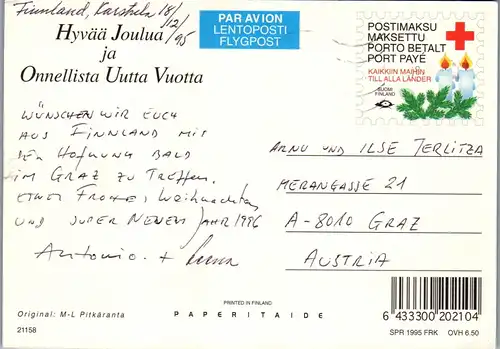 Finnland, Karstula 18/12/95
Hyvää Joulua
ja
Onnellista Uutta Vuotta
PAR AVION
LENTOPOSTI
FLYGPOST
POSTIMAKSU
MAKSETTU
PORTO BETALT
PORT PAYÉ
KAIKKIIN MAIHIN
TILL ALLA LÄNDER
SUOMI
FINLAND
WÜNSCHEN WIR EUCH
AUS FINNLAND MIT
DER HOFNUNG BALD
IM GRAZ ZU TREFFEN.
FROHES WEIHNACHTEN
UND SUPER NEUEN JAHR 1996
Antonio. +
ARNU UND ILSE JERLITZA
MERANGASSE 21
A-8010 GRAZ
AUSTRIA
Original: M-L Pitkäranta
21158
PRINTED IN FINLAND
PAPERITAIDE
6 433300 202104
SPR 1995 FRK OVH 6.50